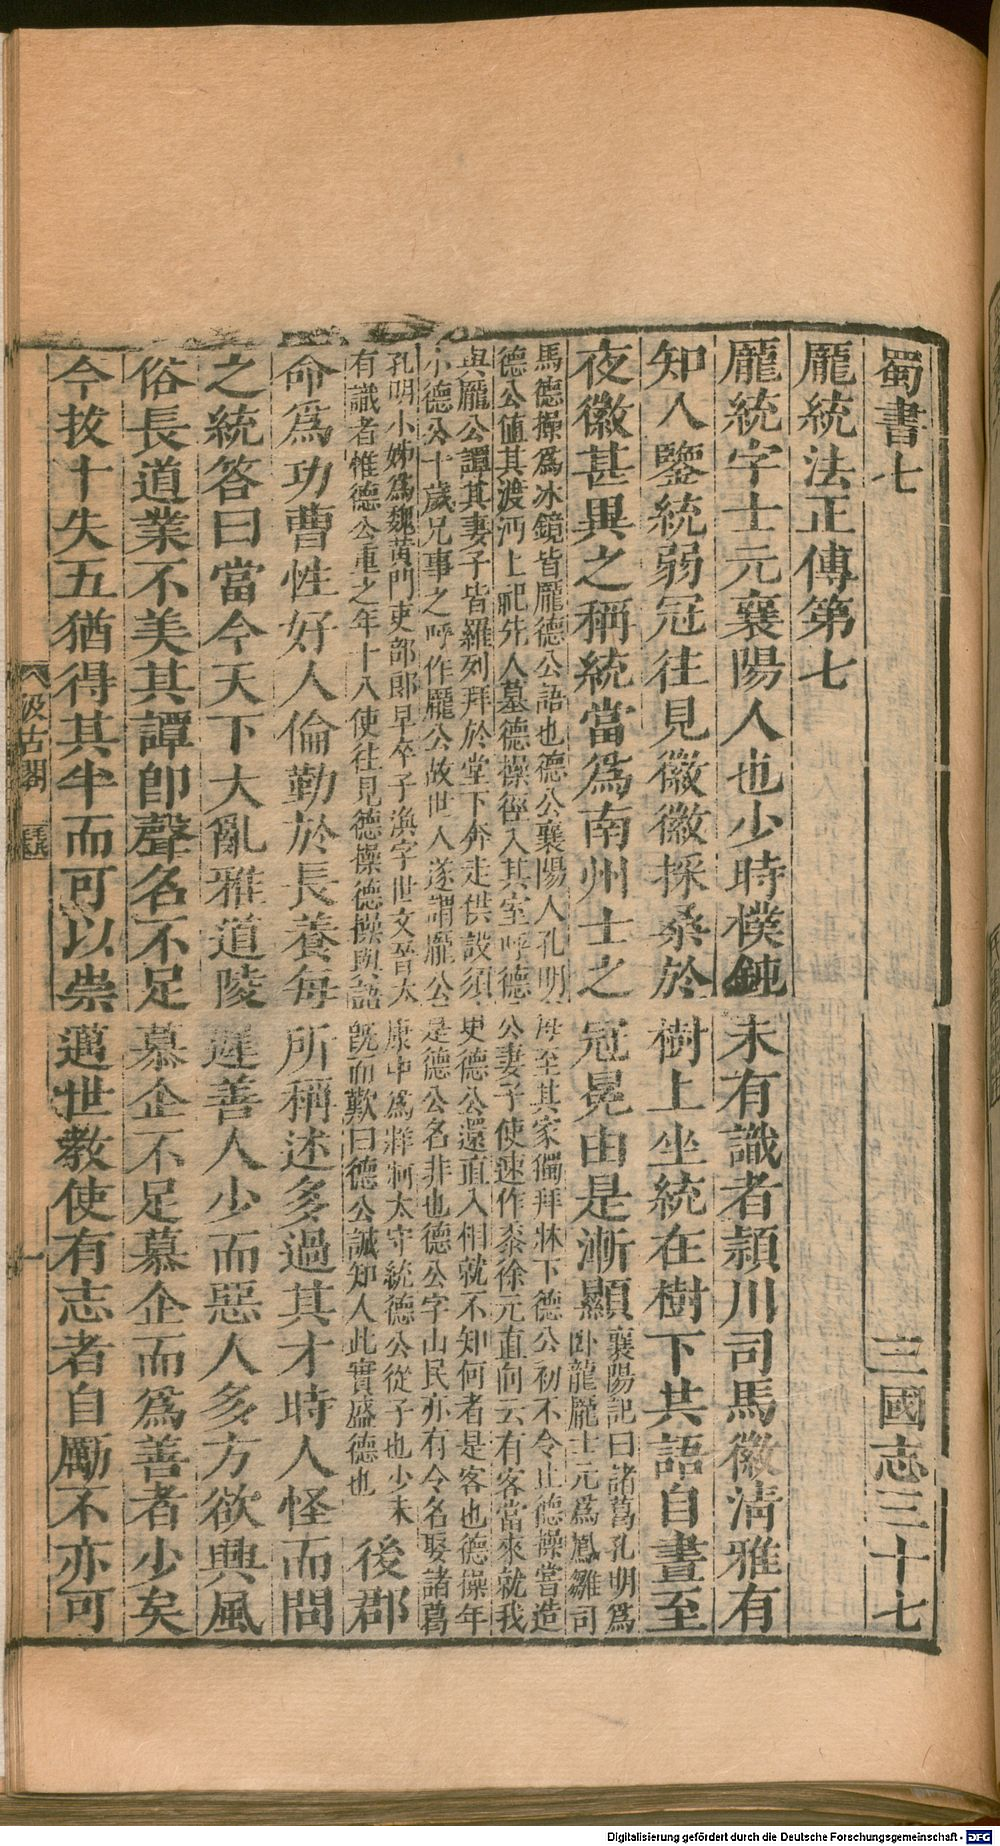 蜀書七　三國志三十七
龐統法正傳第七
龐統字士元襄陽人也少時樸鈍未有識者潁川司馬徽清雅有
知人鑒統弱冠往見徽徽採桑於樹上坐統在樹下共語自晝至
夜徽甚異之稱統當爲南州士之冠冕由是漸顯
襄陽記曰諸葛孔明爲
卧龍龐士元爲鳳雛司
馬德操爲冰鏡皆龐德公語也德公襄陽人孔明每至其家獨拜牀下德公初不令止德操嘗造
德公值其渡沔上祀先人墓德操徑入其室呼德公妻子使速作黍徐元直向云有客當來就我
與龐公譚其妻子皆羅列拜於堂下奔走供設須臾德公還直入相就不知何者是客也德操年
小德公十歲兄事之呼作龐公故世人遂謂龐公是德公名非也德公字山民亦有令名娶諸葛
孔明小姊爲魏黃門吏部郎早卒子渙字世文晉太康中爲牂牁太守統德公從子也少未
有識者惟德公重之年十八使往見德操德操與語旣而歎曰德公誠知人此實盛德也
後郡
命爲功曹性好人倫勤於長養每所稱述多過其才時人怪而問
之統答曰當今天下大亂雅道陵遲善人少而惡人多方欲興風
俗長道業不美其譚卽聲名不足慕企不足慕企而爲善者少矣
今拔十失五猶得其半而可以崇邁世教使有志者自勵不亦可
汲古閣
一
Digitalisierung gefördert durch die Deutsche Forschungsgemeinschaft - DFG